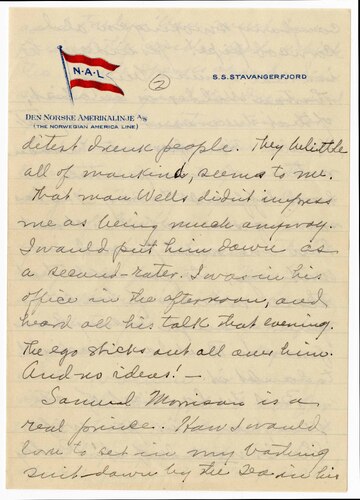 N·A·L
2
S.S. STAVANGERFJORD
DEN NORSKE AMERIKALINJE A/S
(THE NORWEGIAN AMERICA LINE)
detest drunk people. They belittle
all of mankind, seems to me.
That man Wells didn't impress
me as being much anyway.
I would put him down as
a second-rater. I was in his
office in the afternoon, and
heard all his talk that evening.
The ego sticks out all over him.
And no ideas! —
Samuel Morrison is a
real prince. How I would
love to set in my bathing
suit down by the sea in his